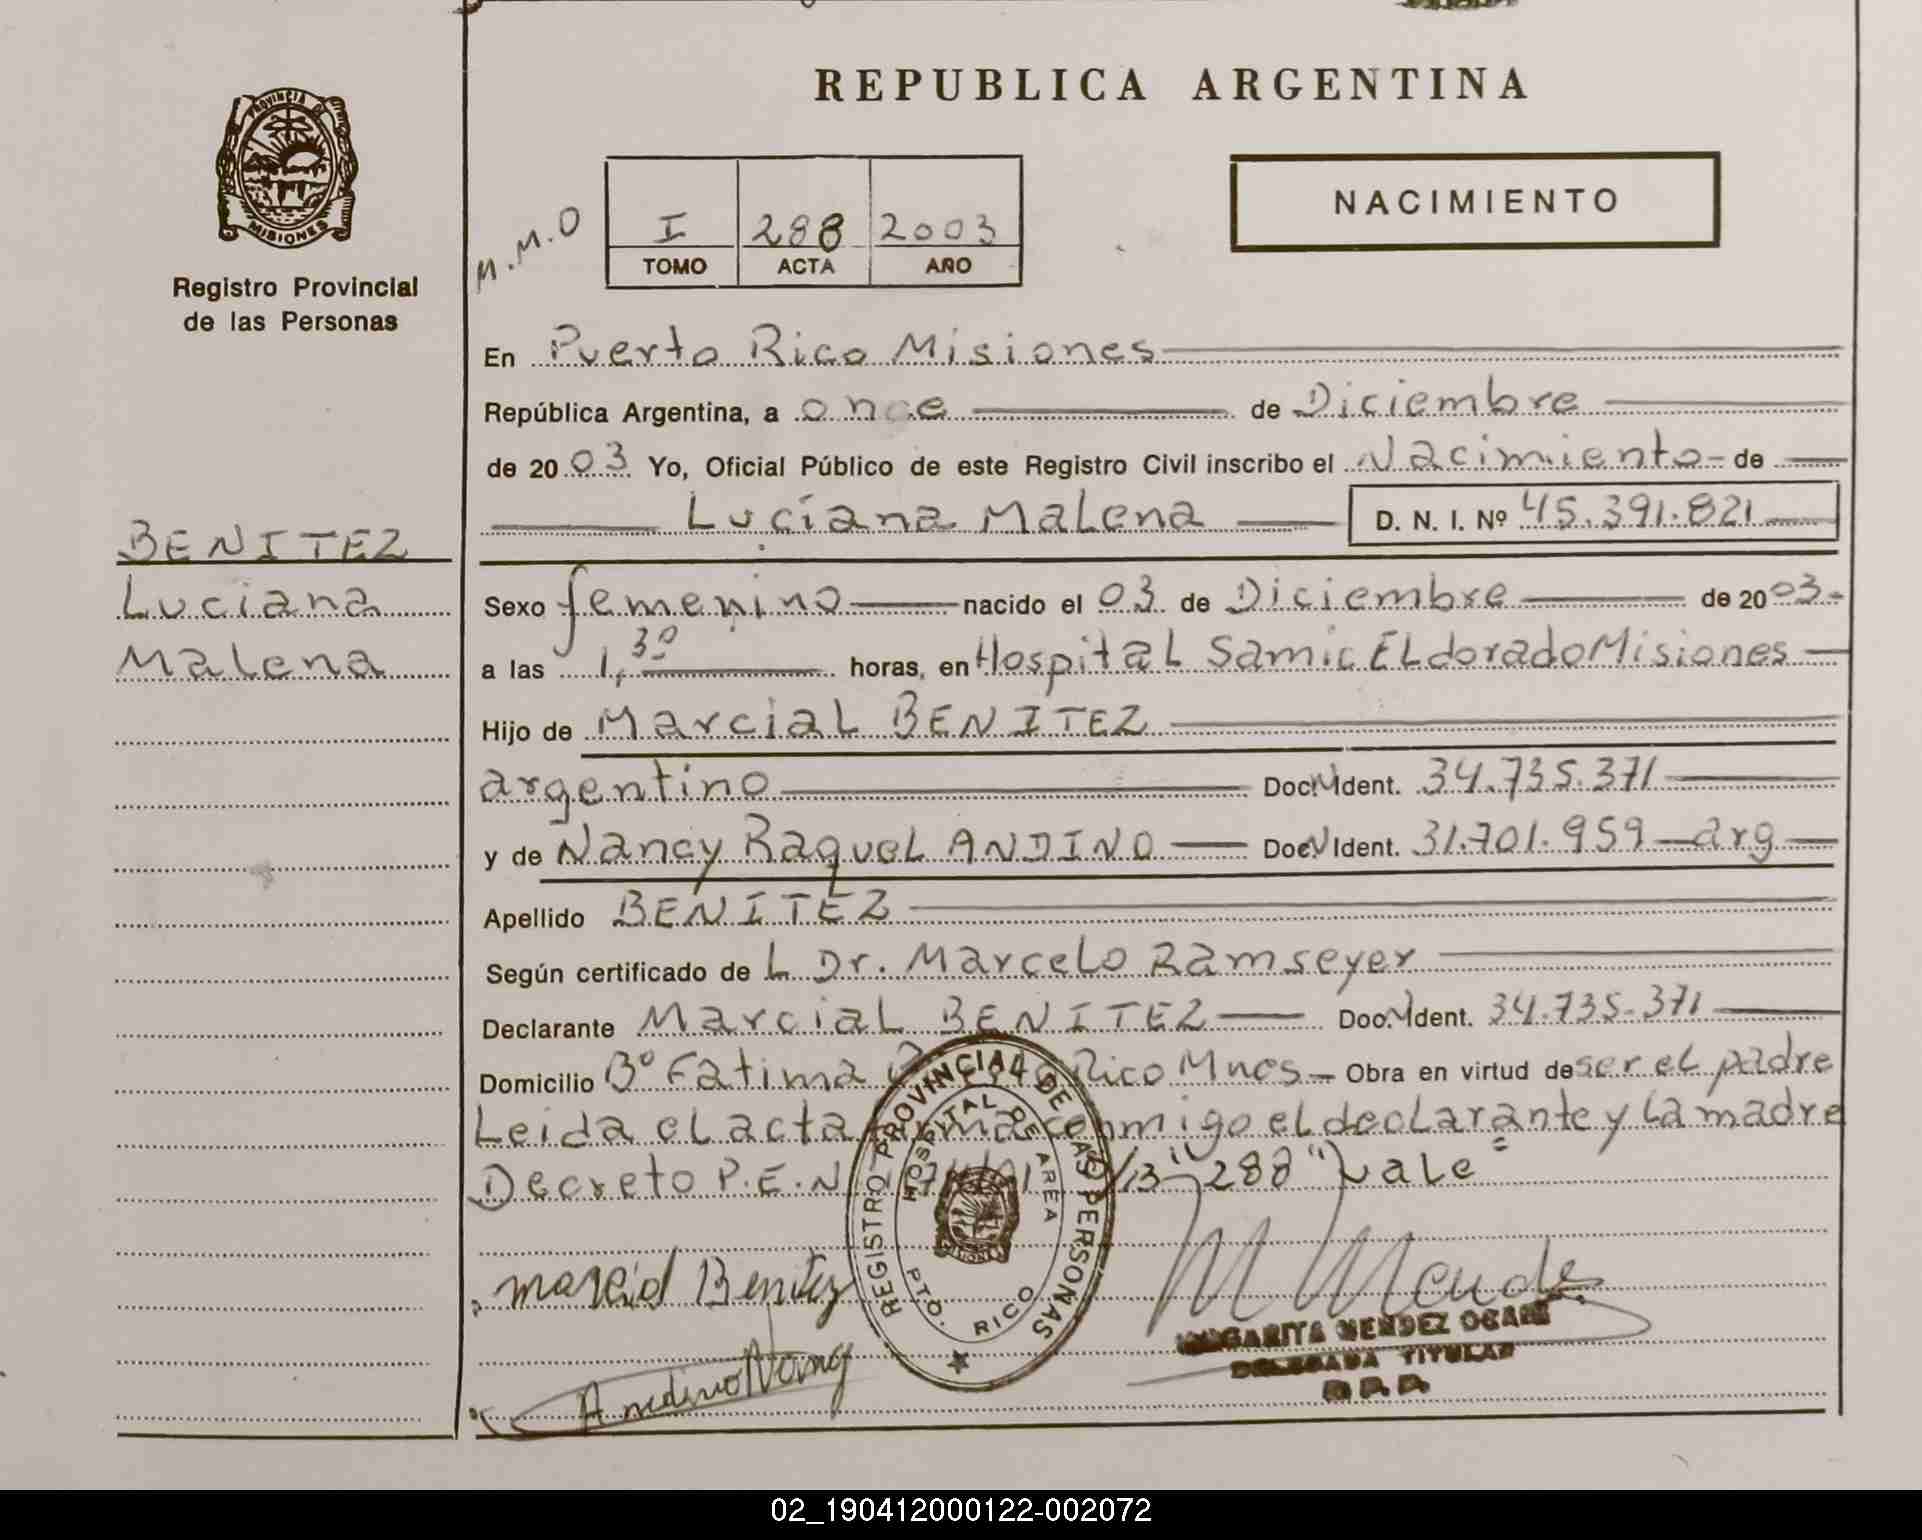 REPUBLICA ARGENTINA
PROVINCIA DE MISIONES
Registro Provincial
de las Personas
NACIMIENTO
M.M.O
I 288 2003
TOMO ACTA AÑO
En Puerto Rico Misiones
República Argentina, a once de Diciembre
de 2003 Yo, Oficial Público de este Registro Civil inscribo el Nacimiento de
Luciana Malena D. N. I. Nº 45.391.821
BENITEZ
Luciana
Malena
Sexo femenino nacido el 03 de Diciembre de 2003
a las 1,30 horas, en Hospital Samic ELdorado Misiones
Hijo de Marcial BENITEZ
argentino Doc. Ident. 34.735.371
y de Nancy Raquel ANDINO Doc. Ident. 31.701.959 arg
Apellido BENITEZ
Según certificado de L Dr. Marcelo Ramseyer
Declarante Marcial BENITEZ Doc. Ident. 34.735.371
Domicilio Bº Fatima Rico Mnes Obra en virtud de ser el padre
Leida el acta firma conmigo el declarante y la madre
Decreto P.E.N "288" vale
Marcial Benitez
Andino Nancy
M Mende
MARGARITA MENDEZ
DELEGADA TITULAR
REGISTRO PROVINCIAL DE LAS PERSONAS
HOSPITAL DE AREA
PTO. RICO
02_190412000122-002072